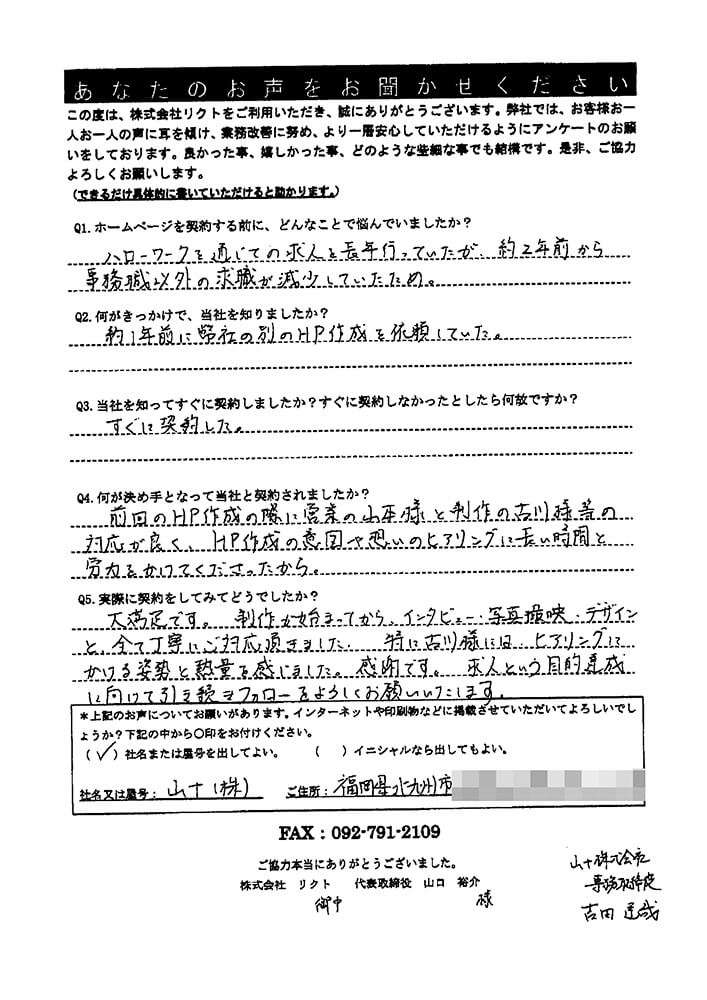 あなたのお声をお聞かせください
この度は、株式会社リクトをご利用いただき、誠にありがとうございます。弊社では、お客様お一
人お一人の声に耳を傾け、業務改善に努め、より一層安心していただけるようにアンケートのお願
いをしております。良かった事、嬉しかった事、どのような些細な事でも結構です。是非、ご協力
よろしくお願いします。
(できるだけ具体的に書いていただけると助かります。)
Q1.ホームページを契約する前に、どんなことで悩んでいましたか?
ハローワークを通じての求人を長年行っていたが、約2年前から
事務職以外の求職が減少していたため。
Q2.何がきっかけで、当社を知りましたか?
約1年前に弊社の別のHP作成を依頼していた。
Q3.当社を知ってすぐに契約しましたか?すぐに契約しなかったとしたら何故ですか?
すぐに契約した。
Q4.何が決め手となって当社と契約されましたか?
前回のHP作成の際に営業の山本様と制作の古川様等の
対応が良く、HP作成の意図や想いのヒアリングに長い時間と
労力をかけてくださったから。
Q5.実際に契約をしてみてどうでしたか?
大満足です。制作が始まってから、インタビュー・写真撮映・デザイン
と、全て丁寧にご対応頂きました。特に古川様には、ヒアリングに
かける姿勢と熱量を感じました。感謝です。求人という目的達成
に向けて引き続きフォローをよろしくお願いいたします。
*上記のお声についてお願いがあります。インターネットや印刷物などに掲載させていただいてよろしいでし
ょうか?下記の中から〇印をお付けください。
(✓)社名または屋号を出してよい。 ( )イニシャルなら出してもよい。
社名又は屋号: 山十(株) ご住所: 福岡県北九州市
FAX:092-791-2109
ご協力本当にありがとうございました。
株式会社 リクト 代表取締役 山口 裕介
御中 様
山十株式会社
専務取締役
吉田